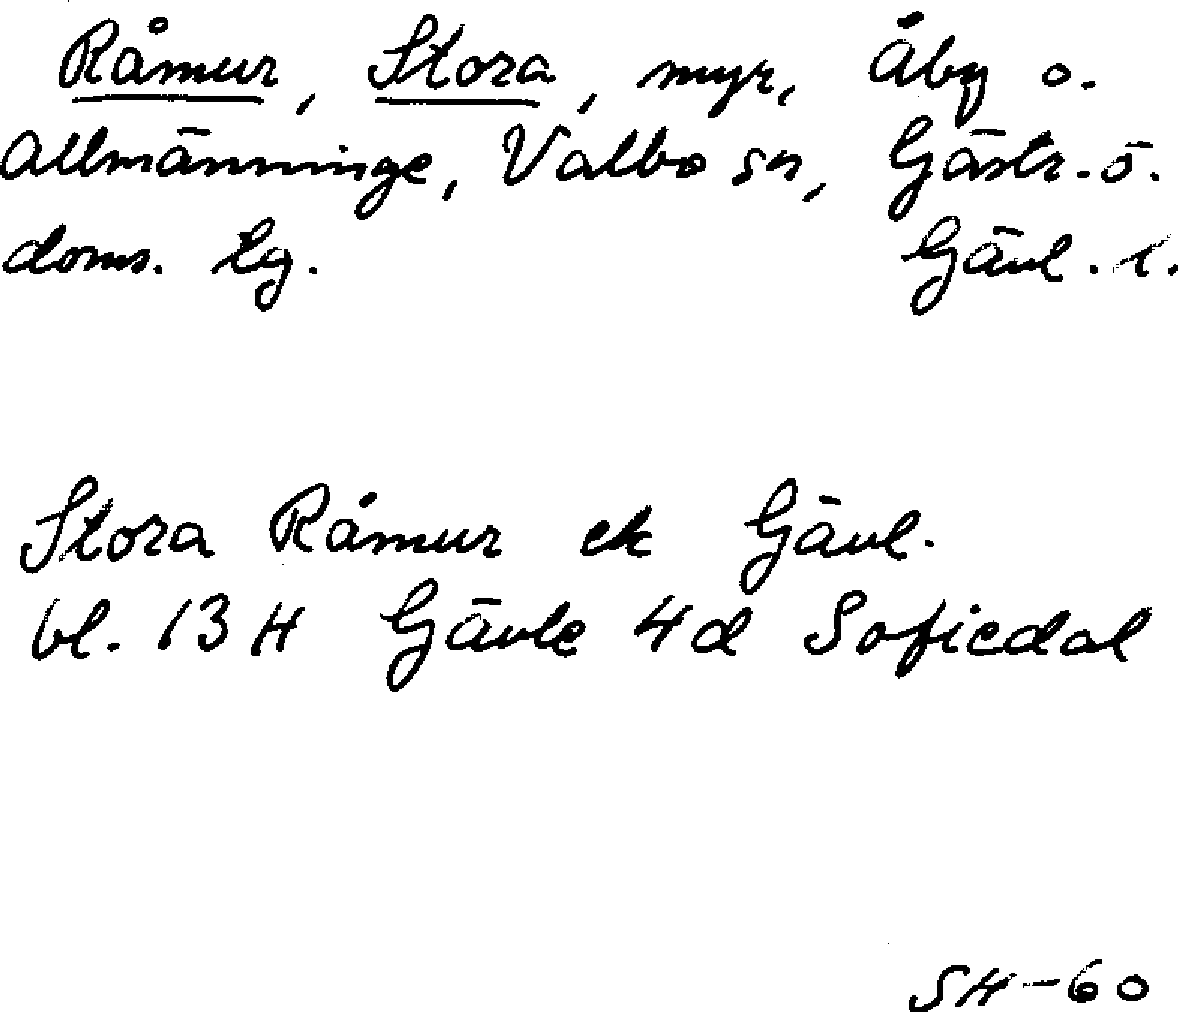 Råmur, Stora, myr, Åby o.
Allmänninge, Valbo sn, Gästr.-ö.
doms. lg. Gävl. l.
Stora Råmur ek Gävl.
bl. 13 H Gävle 4d Sofiedal
SH-60